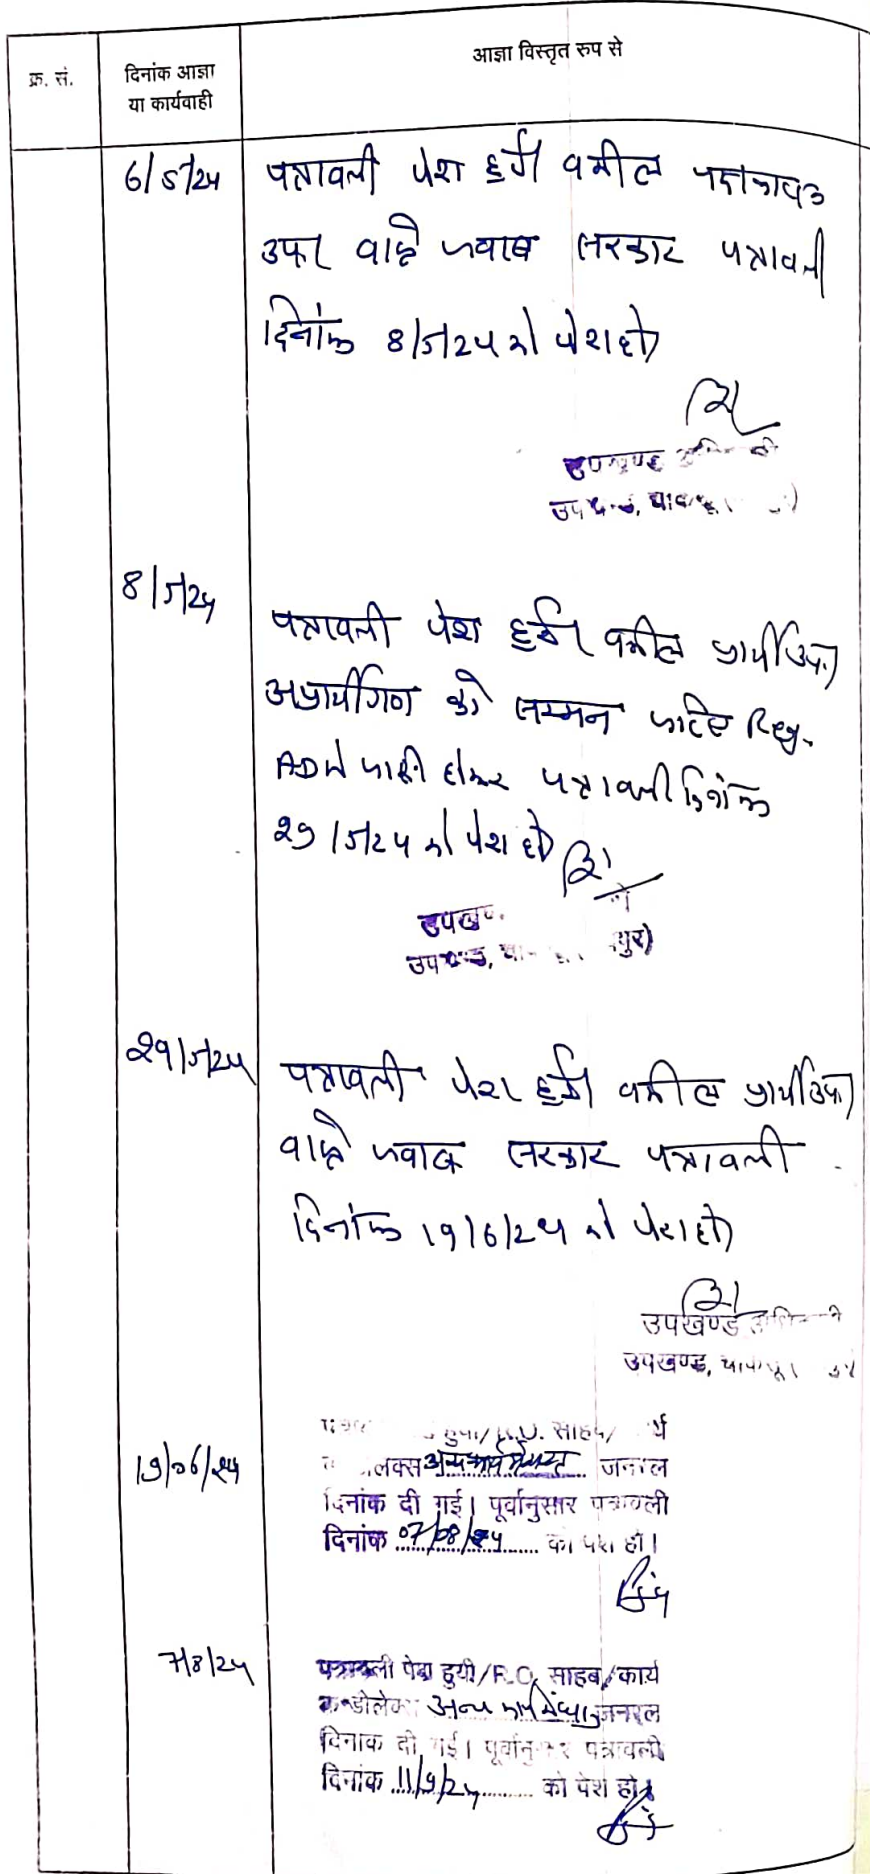 क्र. सं.
दिनांक आज्ञा
या कार्यवाही
आज्ञा विस्तृत रुप से
6/5/24
पत्रावली पेश हुई। वकील
उप। वास्ते जवाब सरकार पत्रावली
दिनांक 8/5/24 को पेश हो
उपखण्ड
8/5/24
पत्रावली पेश हुई। वकील प्रार्थी उप।
अप्रार्थीगण को सम्मन जरिए
AD से जारी होकर पत्रावली दिनांक
29/5/24 को पेश हो
29/5/24
पत्रावली पेश हुई। वकील प्रार्थी उप।
वास्ते जवाब सरकार पत्रावली
दिनांक 19/6/24 को पेश हो
उपखण्ड
उपखण्ड,
19/06/24
साहब/
अन्य कार्य में व्यस्त जनरल
दिनांक दी गई। पूर्वानुसार पत्रावली
दिनांक 07/08/24 को पेश हो।
7/8/24
पत्रावली पेश हुयी/R.O. साहब/कार्य
अन्य कार्य में जनरल
दिनांक दी गई। पूर्वानुसार पत्रावली
दिनांक 11/9/24 को पेश हो।